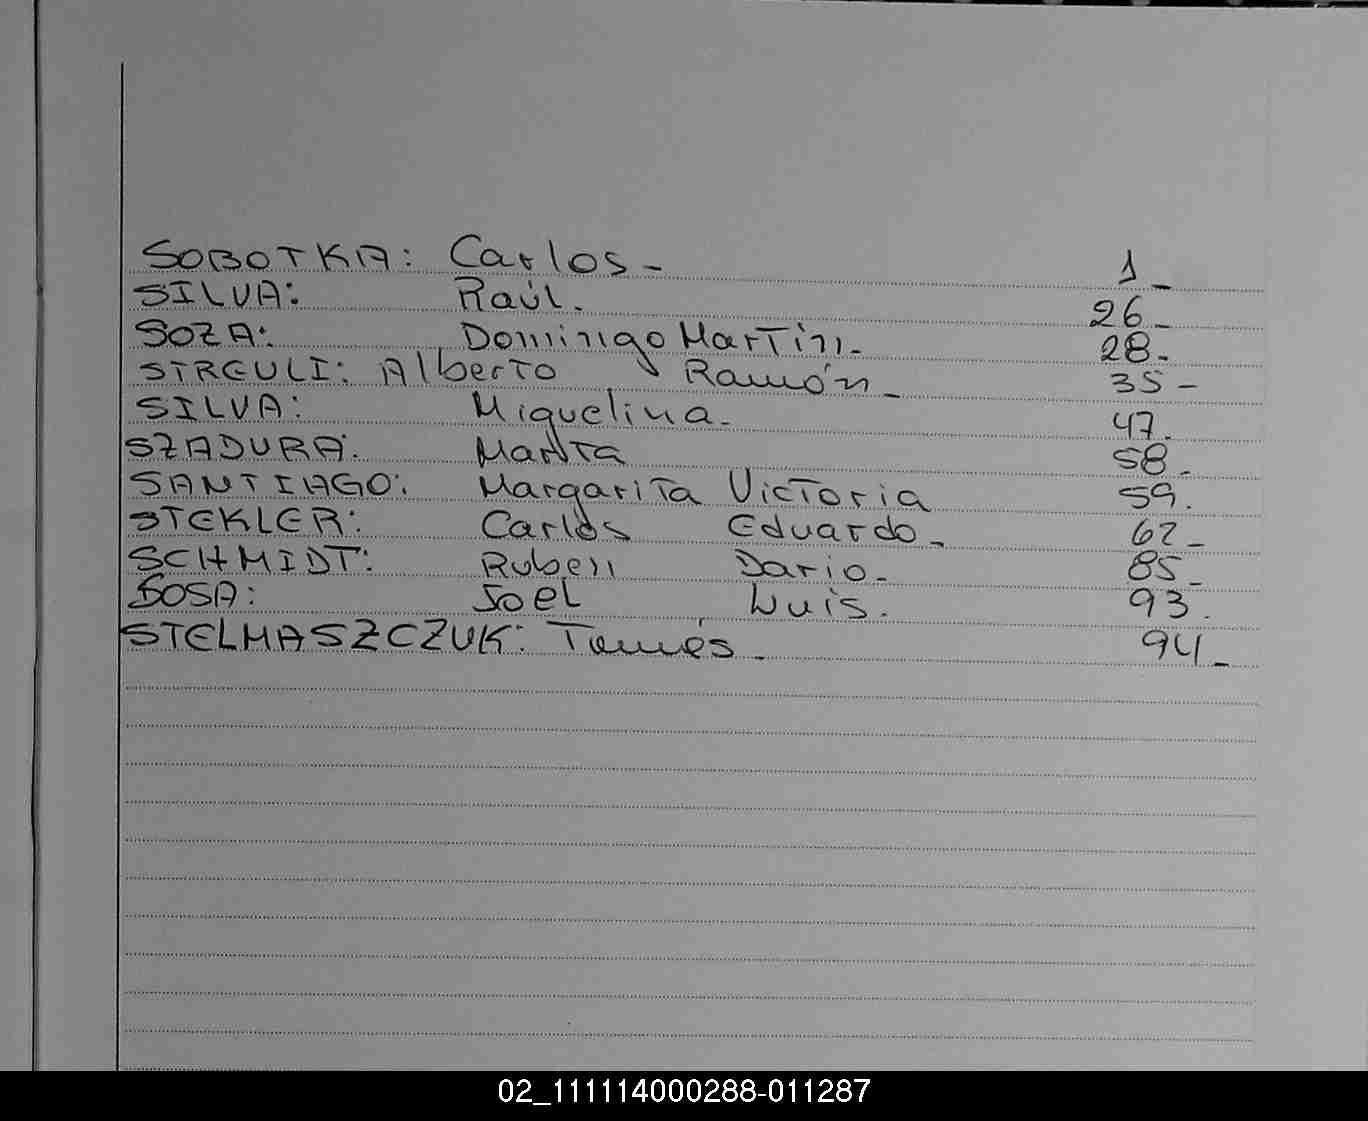 SOBOTKA: Carlos- 1_
SILVA: Raúl. 26_
SOZA: Domingo Martín. 28-
STRGULI: Alberto Ramón_ 35-
SILVA: Miguelina- 47.
SZADURA: Marta 58-
SANTIAGO: Margarita Victoria 59.
STEKLER: Carlos Eduardo- 62-
SCHMIDT: Ruben Dario- 85-
SOSA: Joel Luis. 93.
STELMASZCZUK: Tomés_ 94_
02_111114000288-011287